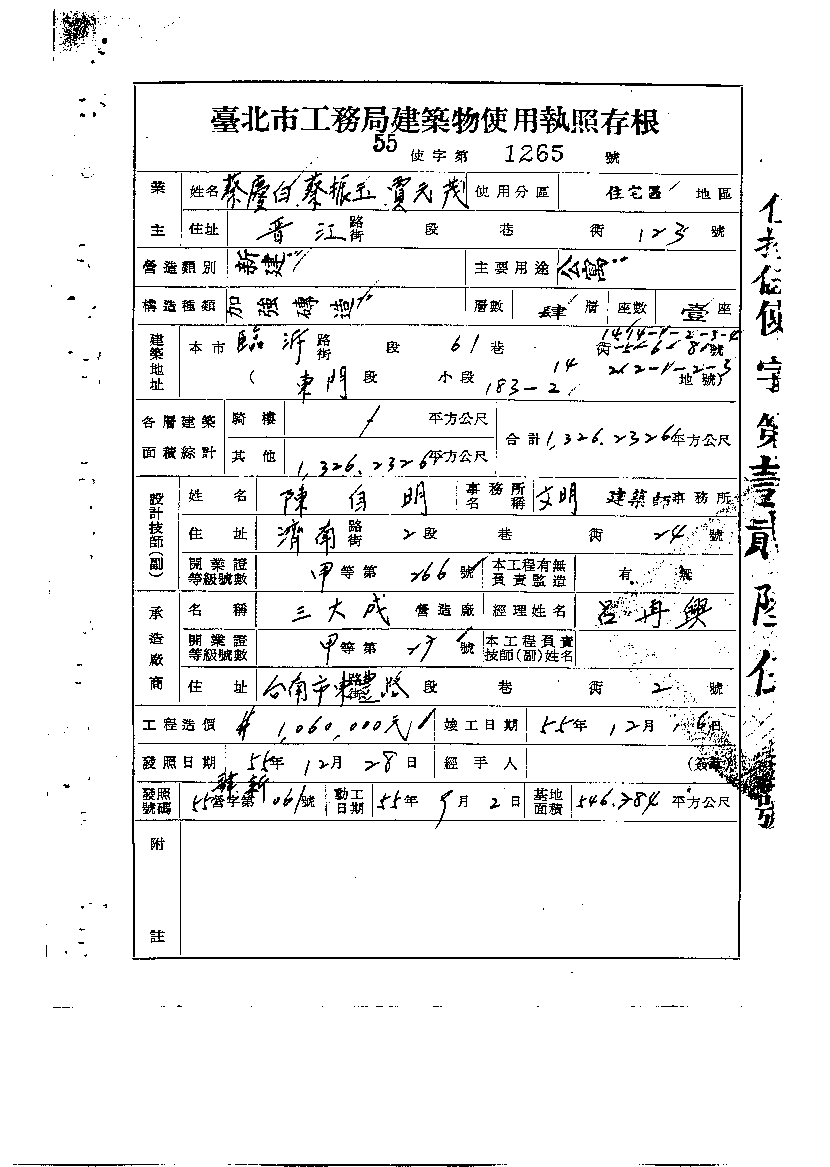 臺北市工務局建築物使用執照存根
55 使字第 1265 號
業主 姓名 蔡慶白 蔡振玉 賈元茂 使用分區 住宅區 地區
住址 晋江 路街 段 巷 衖 123 號
營造類別 新建 主要用途 公寓
構造種類 加強磚造 層數 肆 層 座數 壹 座
建築地址 本市 臨沂 路街 段 61 巷 衖 號
( 東門 段 小段 183-2 地號)
各層建築面積綜計 騎樓 / 平方公尺 合計 1,326.2326 平方公尺
其他 1,326.2326 平方公尺
設計技師(副) 姓名 陳自明 事務所名稱 文明 建築師事務所
住址 濟南 路街 2 段 巷 衖 24 號
開業證等級號數 甲 等第 266 號 本工程有無負責監造 有 無
承造廠商 名稱 三大成 營造廠 經理姓名 呂再興
開業證等級號數 甲 等第 號 本工程負責技師(副)姓名
住址 台南市東豐路 路街 段 巷 衖 2 號
工程造價 # 1,060,000元 竣工日期 55 年 12 月 16 日
發照日期 55 年 12 月 28 日 經手人 (簽章)
發照號碼 55 營字第 061 號 動工日期 55 年 9 月 2 日 基地面積 546.784 平方公尺
附註
使字第壹貳陸伍號